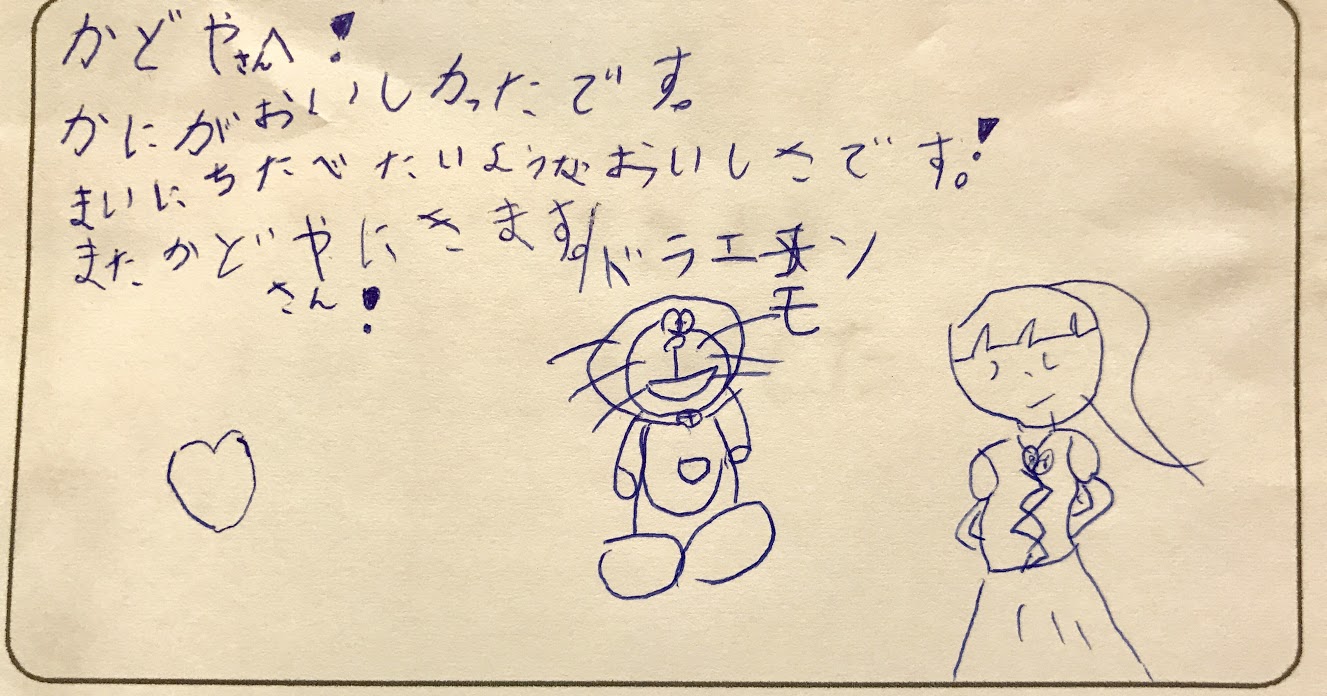 かどやさんへ!
かにがおいしかったです。
まいにちたべたいようなおいしさです!
またかどやさんにきます。!
ドラエモン